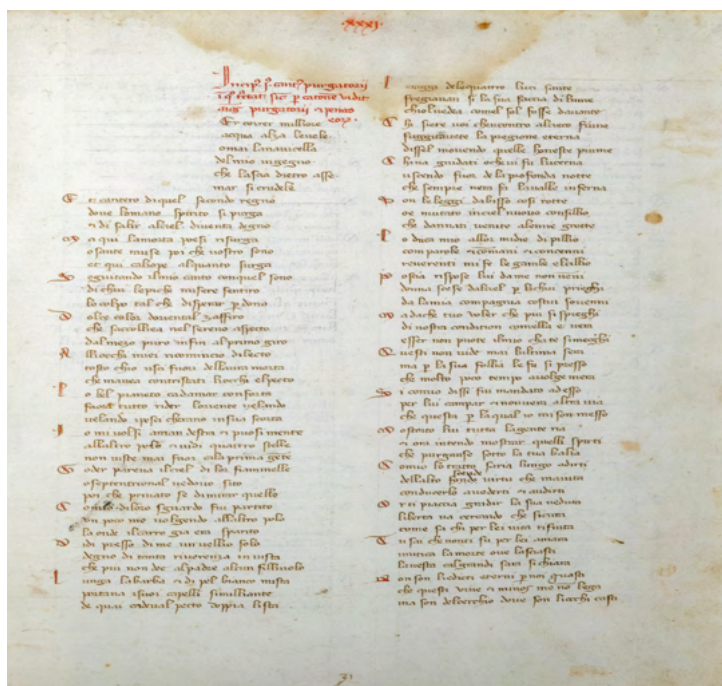 .xxxi.
Er correr migliore
acqua alza le vele
omai la navicella
del mio ingegno
che lascia dietro a sse
mar si crudele
E canterò di quel secondo regno
dove lomano spirito si purga
e di salir alciel diventa degno
M a qui lamorta poesi risurga
o sante muse poi che vostro sono
et qui caliope alquanto surga
S eguitando ilmio canto conquel sono
di chui lepiche misere sentiro
lo colpo tal che disperar perdono
D olce color doriental zaffiro
che saccogliea nel sereno aspecto
dalmezo puro infin alprimo giro
A llocchi miei ricomincio dilecto
tosto chio usci fuor dellaura morta
che mavea contristati locchi elpecto
L o bel pianeto cadamar conforta
faceva tutto rider loriente
velando ipesci cherano insua scorta
I o mi volsi aman destra e puosi mente
allaltro polo e vidi quattro stelle
non viste mai fuor cala prima gente
G oder pareva ilciel di lor fiammelle
o septentrional vedovo sito
poi che privato se dimirar quelle
C omio daloro sguardo fui partito
un poco me volgendo allaltro polo
la onde ilcarro gia era sparito
V idi presso di me un veglio solo
degno di tanta riverenza in vista
che piu non dee alpadre alcun figliuolo
L unga labarba e di pel bianco mista
portava isuoi capelli simigliante
de quai cadeval pecto doppia lista
L i raggi delequattro luci sante
fregiavan si la sua faccia di lume
chio lvedea comel sol fosse davante
C hi siete voi checontro alcieco fiume
fuggito avete la pregione eterna
dissel movendo quelle honeste piume
C hi va guidati o chi vi fu lucerna
uscendo fuor dela profonda notte
che sempre nera fa lavalle inferna
S on le leggi dabisso cosi rotte
o e mutato inciel nuovo consiglio
che dannati venite alemie grotte
L o duca mio allor midie di piglio
con parole e con mani e con cenni
reverenti mi fe le gambe elciglio
P oscia rispose lui da me non venni
donna scese dalciel per lichui prieghi
da la mia compagnia costui sovenni
M a dache tuo voler che piu si spieghi
di nostra condition comella e vera
esser non puote ilmio cha te sinieghi
Q uesti non vide mai lultima sera
ma per la sua follia le fu si presso
che molto poco tempo avolger era
S i comio dissi fui mandato ad esso
per lui campar e nonvera altra via
che questa per la qual io mi son messo
M ostrato lui tutta lagente ria
e ora intendo mostrar quelli spirti
che purgan se sotto la tua balia
C omio lo tratto saria lungo adirti
dellalto scende virtu che maiuta
conducerlo avederti e audirti
O r ti piaccia gradir la sua venuta
liberta va cercando che sicara
come sa chi per lei vita rifiuta
T u sai che nonti fu per lei amara
inutica la morte ove lasciasti
lavesta calgrandi sara sichiara
N on son liediti eterni per noi guasti
che questi vive e minos me no lega
ma son delcerchio dove son liocchi casti
31